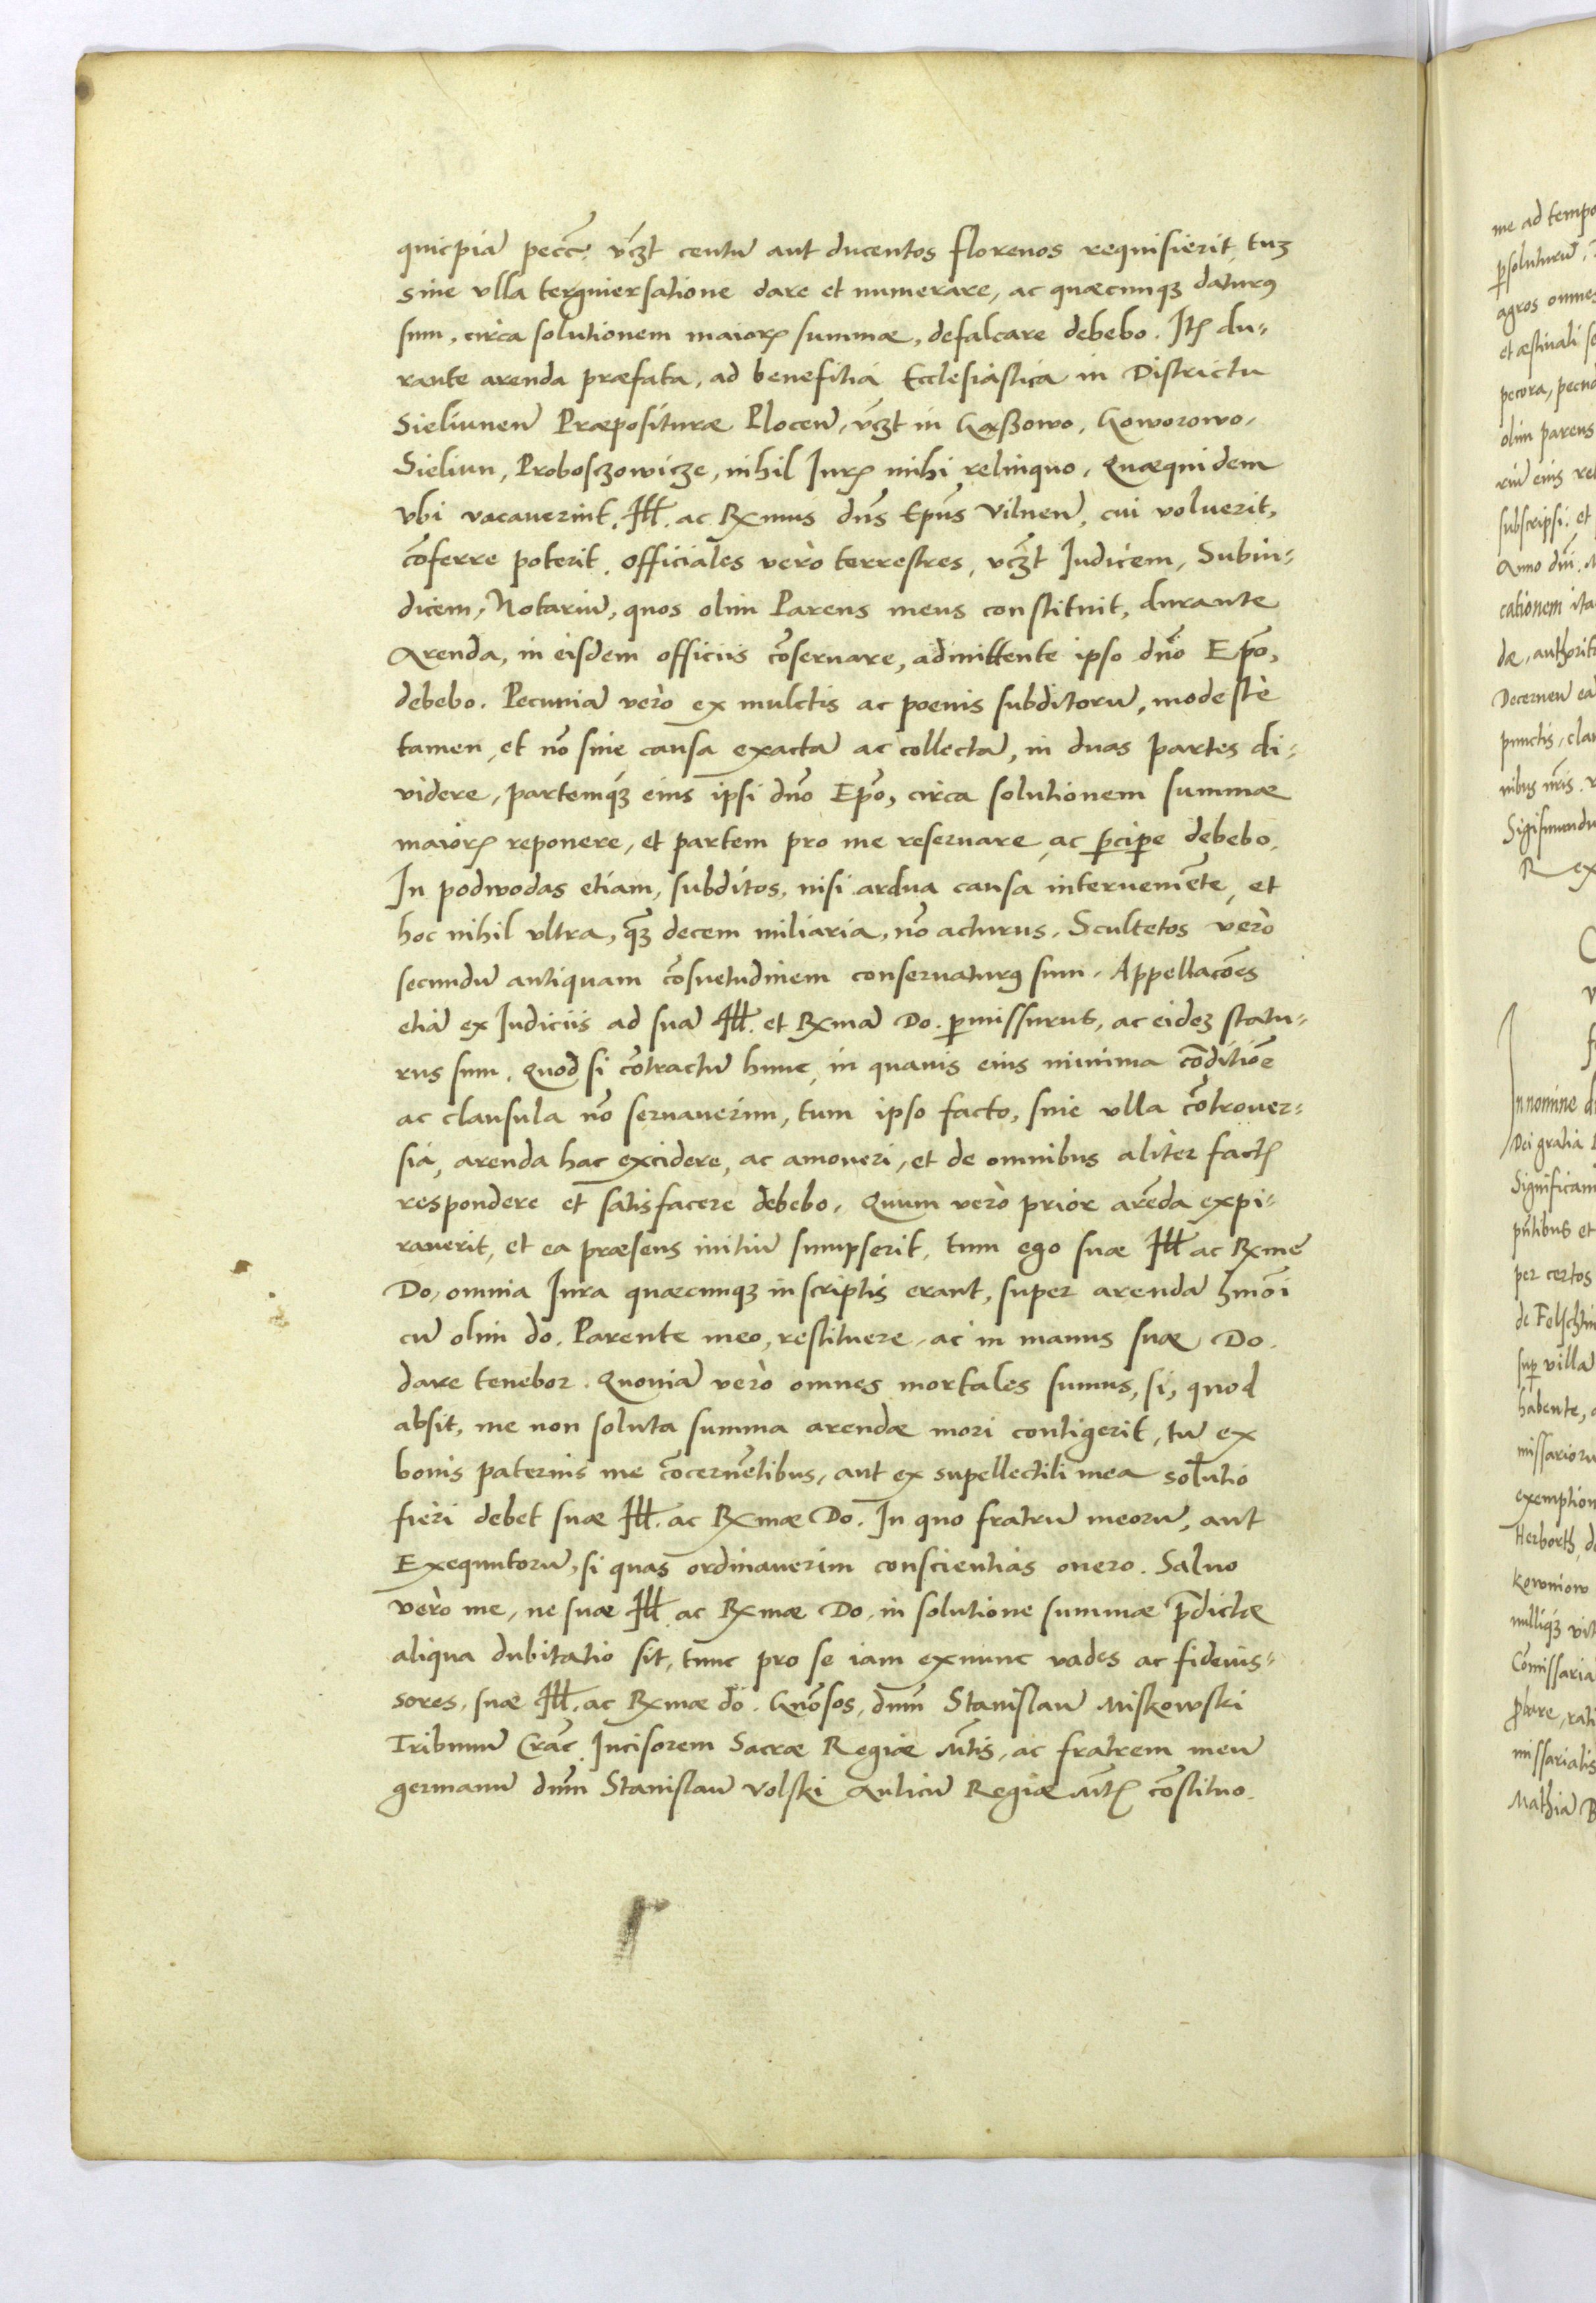 quicpiã pecc̃. vcz̃t centũ aut ducentos florenos requisierit, tuz
sine vlla terguiersatione dare et numerare, ac quæcunqz daturꝯ
sum, circa solutionem maioris summæ, defalcare debebo. Itẽ du-
rante arenda præfata, ad benefitia Ecclesiastica in Districtu
Sieliunen̄ Præposituræ Plocen̄, vcz̃t in Goßowo, Goworowo,
Sieliun, Proboszczowicze, nihil Iuris mihi relinquo, Quæquidem
vbi vacauerint, Ill. ac Rx̃mus dñs Epũs Vilnen̄, cui voluerit,
cõferre poterit. Officiales verò terrestres, vcz̃t Iudicem, Subiu-
dicem, Notariũ, quos olim Parens meus constituit, durante
Arenda, in eisdem officiis cõseruare, admittente ipso dño Epõ,
debebo. Pecuniã verò ex mulctis ac poenis subditorũ, modestè
tamen, et nõ sine causa exactã ac collectã, in duas partes di-
videre, partemqz eius ipsi dño Epõ, circa solutionem summæ
maioris reponere, et partem pro me reseruare ac ꝑciꝑe debebo.
In podwodas etiam, subditos, nisi ardua causa interueniẽte, et
hoc nihil vltra, qz̃ decem miliaria, nõ acturus. Scultetos verò
secundũ antiquam cõsuetudinem conseruaturꝯ sum. Appellacões
etiã ex Iudiciis ad suã Ill. et Rx̃mã Do. ꝑmissurus, ac eidez statu-
rus sum. Quod si cõtractũ hunc, in quauis eius minima cõditiõe
ac clausula nõ seruauerim, tum ipso facto, sine vlla cõtrouer-
sia, arenda hac excidere, ac amoueri, et de omnibus aliter factis
respondere et satisfacere debebo. Quum verò prior arẽda expi-
rauerit, et ea præsens initiũ sumpserit, tum ego suæ Ill ac Rx̃me
Do, omnia Iura quæcunqz in scriptis erant, super arendã hmõi
cũ olim do. Parente meo, restituere, ac in manus suæ Do.
dare tenebor. Quoniã verò omnes mortales sumus, si, quod
absit, me non soluta summa arendæ mori contigerit, tũ ex
bonis paternis me cõcernẽtibus, aut ex supellectili mea solutio
fieri debet suæ Ill. ac Rx̃mæ Do. In quo fratrũ meorũ, aut
Exequutorũ, si quas ordinauerim conscientias onero. Saluo
verò me, ne suæ Ill. ac Rx̃mæ Do. in solutione summæ p̃dictæ
aliqua dubitatio sit, tunc pro se iam exnunc vades ac fideius-
sores, suæ Ill. ac Rx̃mæ do. Gnõsos, dnm̃ Stanislaũ Miskowski
Tribunũ Crac̃. Incisorem Sacræ Regiæ Mt̃is, ac fratrem meũ
germanũ dnm̃ Stanislaũ Volski Aulicũ Regiæ Mt̃is cõstituo.
me ad tempo
ꝑsoluturũ,
agros omnes
et æstiuali se
olim parens
subscripsi. et
Anno dñi. M
cationem ita
dæ, authorita
Decernen̄ ea
punctis, clau
nibus nr̃is. r
Sigismundu
Rex
In nomine d
Dei gratia
Significam
pñtibus et
per certos
de Felschtin
suꝑ villã
habente, a
missariorũ
exemption
Herborth, d
Kowniow
nulliqz vit
Cõmissaria
missarialis
Mathiã B